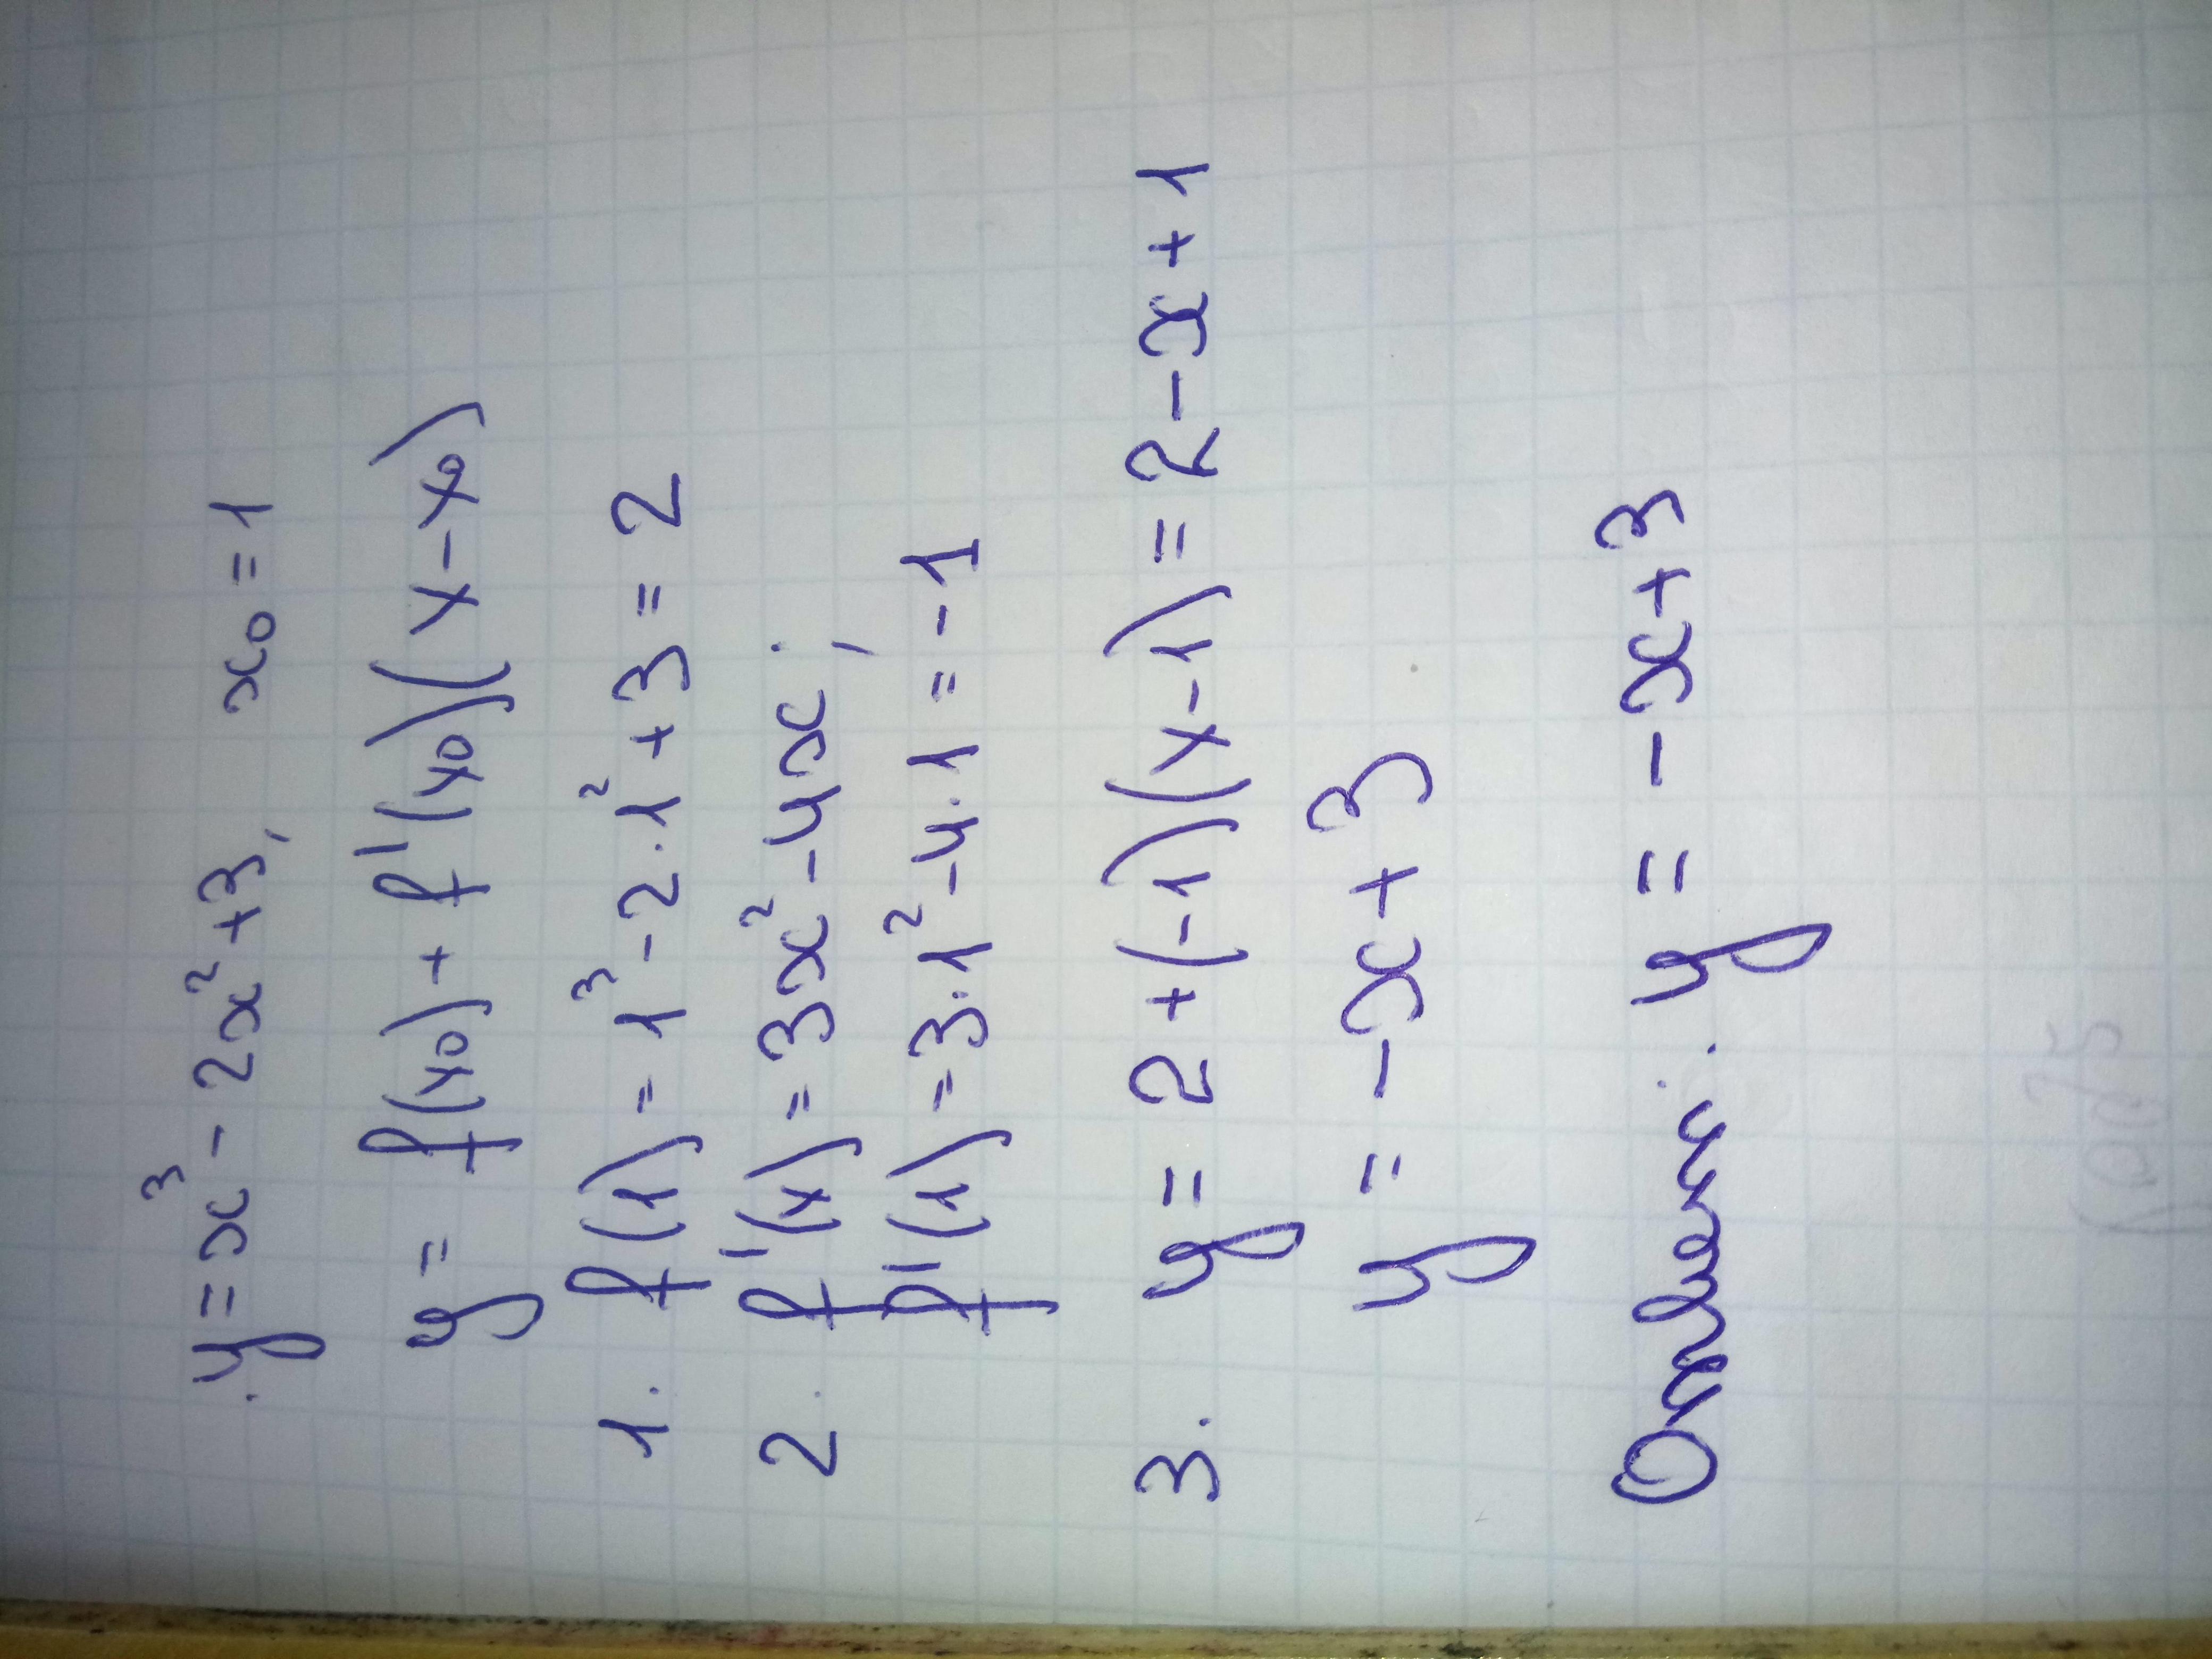 y = x³ - 2x² + 3, x₀ = 1
y = f(x₀) + f'(x₀)(x - x₀)
1. f(1) = 1³ - 2·1² + 3 = 2
2. f'(x) = 3x² - 4x;
f'(1) = 3·1² - 4·1 = -1
3. y = 2 + (-1)(x - 1) = 2 - x + 1
y = -x + 3
Ответ: y = -x + 3